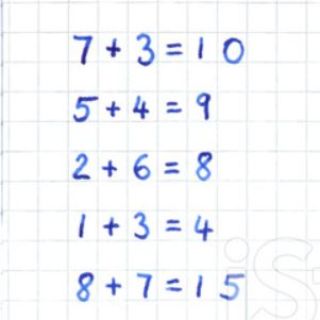 7 + 3 = 10
5 + 4 = 9
2 + 6 = 8
1 + 3 = 4
8 + 7 = 15
iS